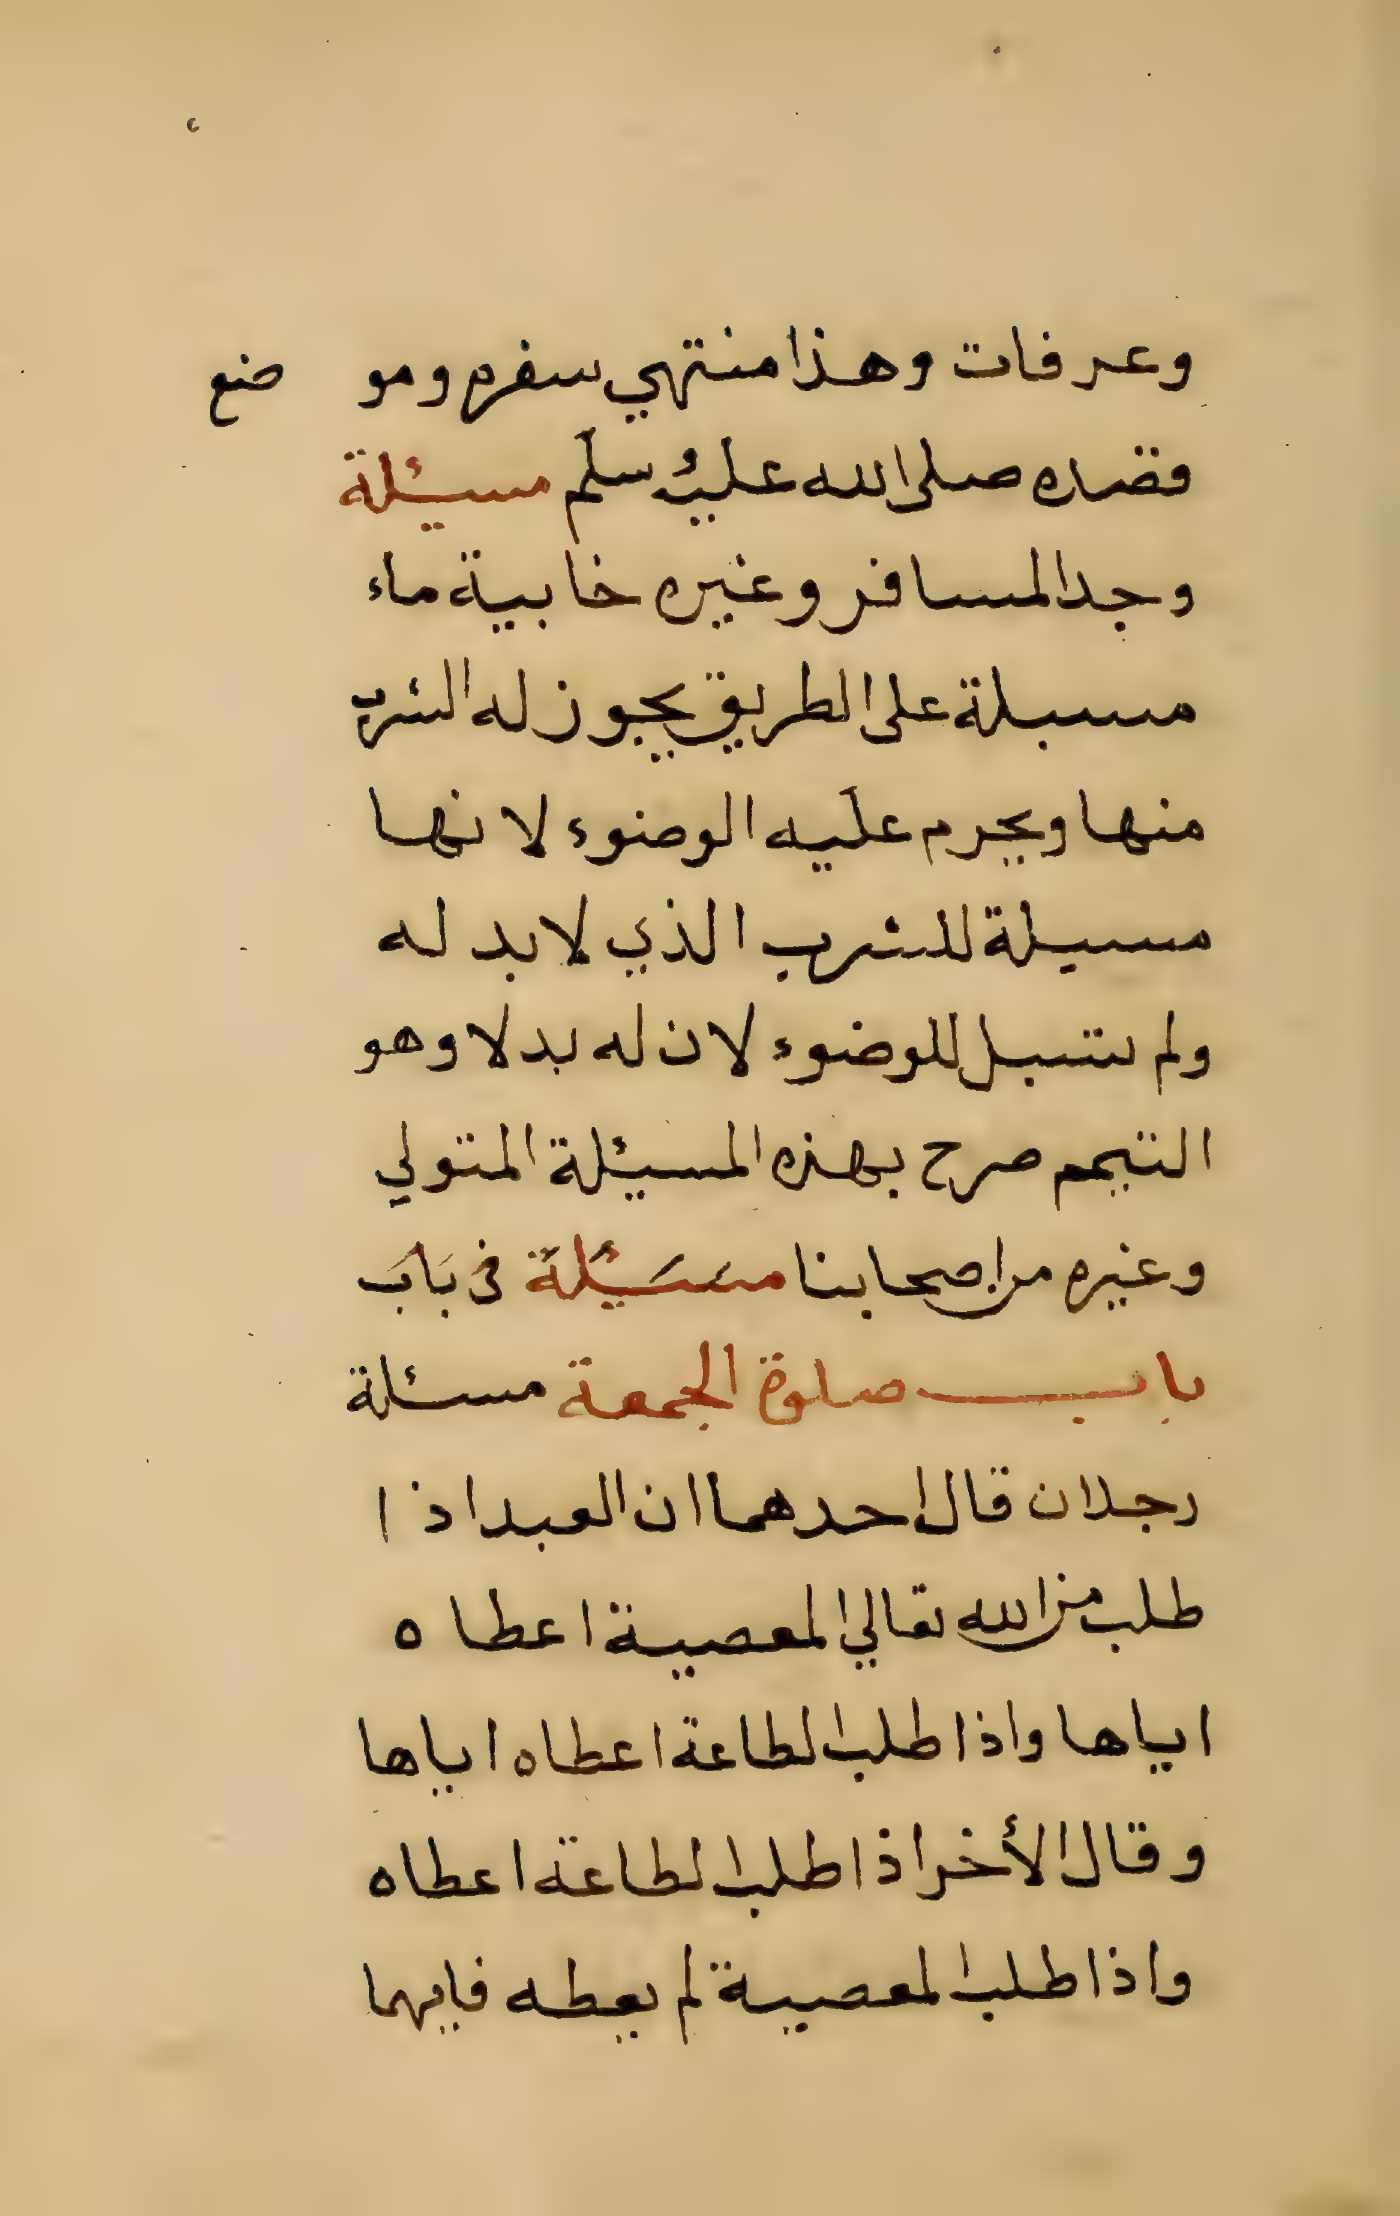 وعرفات وهذا منتهي سفره ومو ضع
قصده صلى الله عليه وسلم مسيئلة
وجد المسافر وغيره خابية ماء
مسبلة على الطريق يجوز له الشرب
منها ويحرم عليه الوضوء لانها
مسبلة للشرب الذي لابد له
ولم تسبل للوضوء لان له بدلا وهو
التيمم صرح بهذه المسيئلة المتولي
وغيره من اصحابنا مسيئلة في باب
باب صلوة الجمعة مسئلة
رجلان قال احدهما ان العبد اذا
طلب من الله تعالي المعصية اعطاه
اياها واذا طلب الطاعة اعطاه اياها
وقال الأخر اذا طلب الطاعة اعطاه
واذا طلب المعصية لم يعطه فايهما